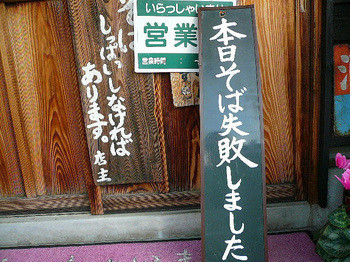 いらっしゃいませ
営業
営業時間
本日そば失敗しました
しっぱいしなければ
あります。
店主